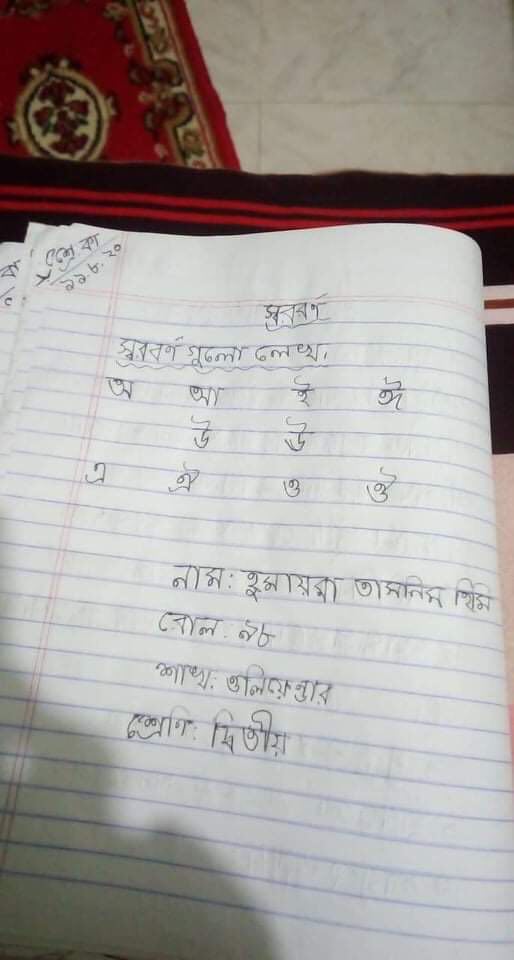 শ্রে. কা
১১.৮.২০
স্বরবর্ণ
স্বরবর্ণ গুলো লেখ.
অ আ ই ঈ
উ ঊ
এ ঐ ও ঔ
নাম: হুমায়রা তাসনিম খিমি
রোল: ৯৮
শাখা: ওলিয়েন্ডার
শ্রেণি: দ্বিতীয়